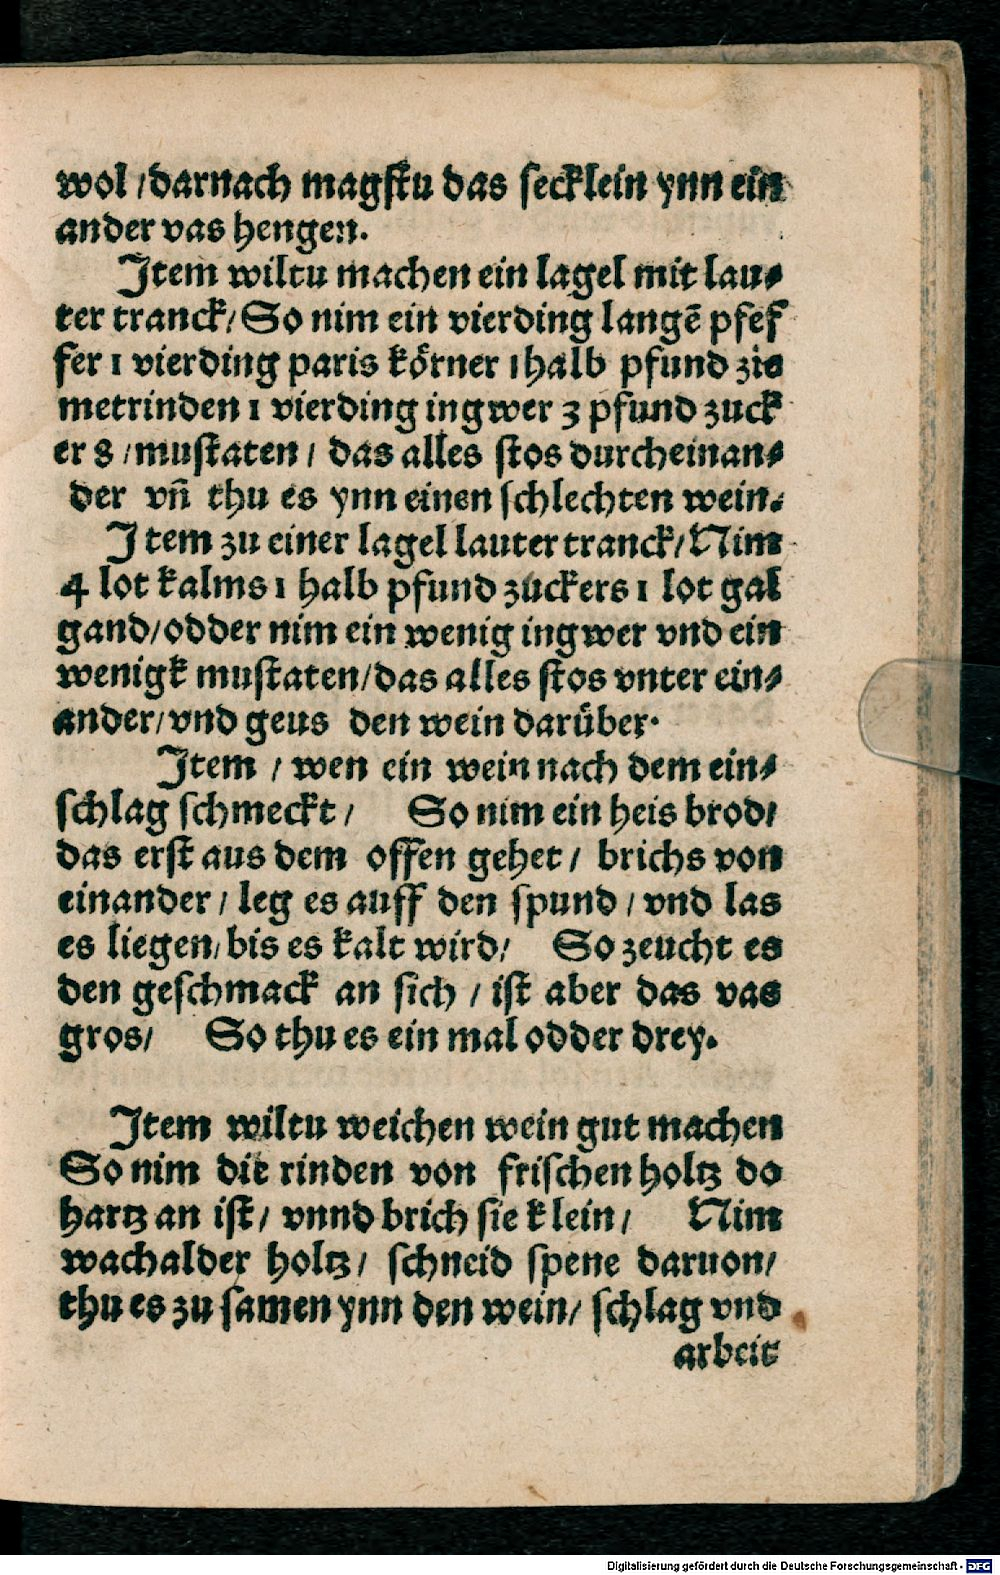 wol /darnach magstu das secklein ynn ein
ander vas hengen.
Jtem wiltu machen ein lagel mit lau⸗
ter tranck/ So nim ein vierding langē pfef
fer 1 vierding paris körner 1 halb pfund zie
metrinden 1 vierding ingwer 3 pfund zuck
er 8 /muskaten/ das alles stos durcheinan⸗
der vñ thu es ynn einen schlechten wein.
Jtem zu einer lagel lauter tranck/ Nim
4 lot kalms 1 halb pfund zuckers 1 lot gal
gand/odder nim ein wenig ingwer vnd ein
wenigk muskaten/das alles stos vnter ein⸗
ander/vnd geus den wein darüber.
Jtem / wen ein wein nach dem ein⸗
schlag schmeckt / So nim ein heis brod/
das erst aus dem offen gehet / brichs von
einander / leg es auff den spund / vnd las
es liegen/ bis es kalt wird/ So zeucht es
den geschmack an sich / ist aber das vas
gros/ So thu es ein mal odder drey.
Jtem wiltu weichen wein gut machen
So nim die rinden von frischen holtz do
hartz an ist/ vnnd brich sie klein / Nim
wachalder holtz / schneid spene daruon/
thu es zu samen ynn den wein/ schlag vnd
arbeit
Digitalisierung gefördert durch die Deutsche Forschungsgemeinschaft - DFG